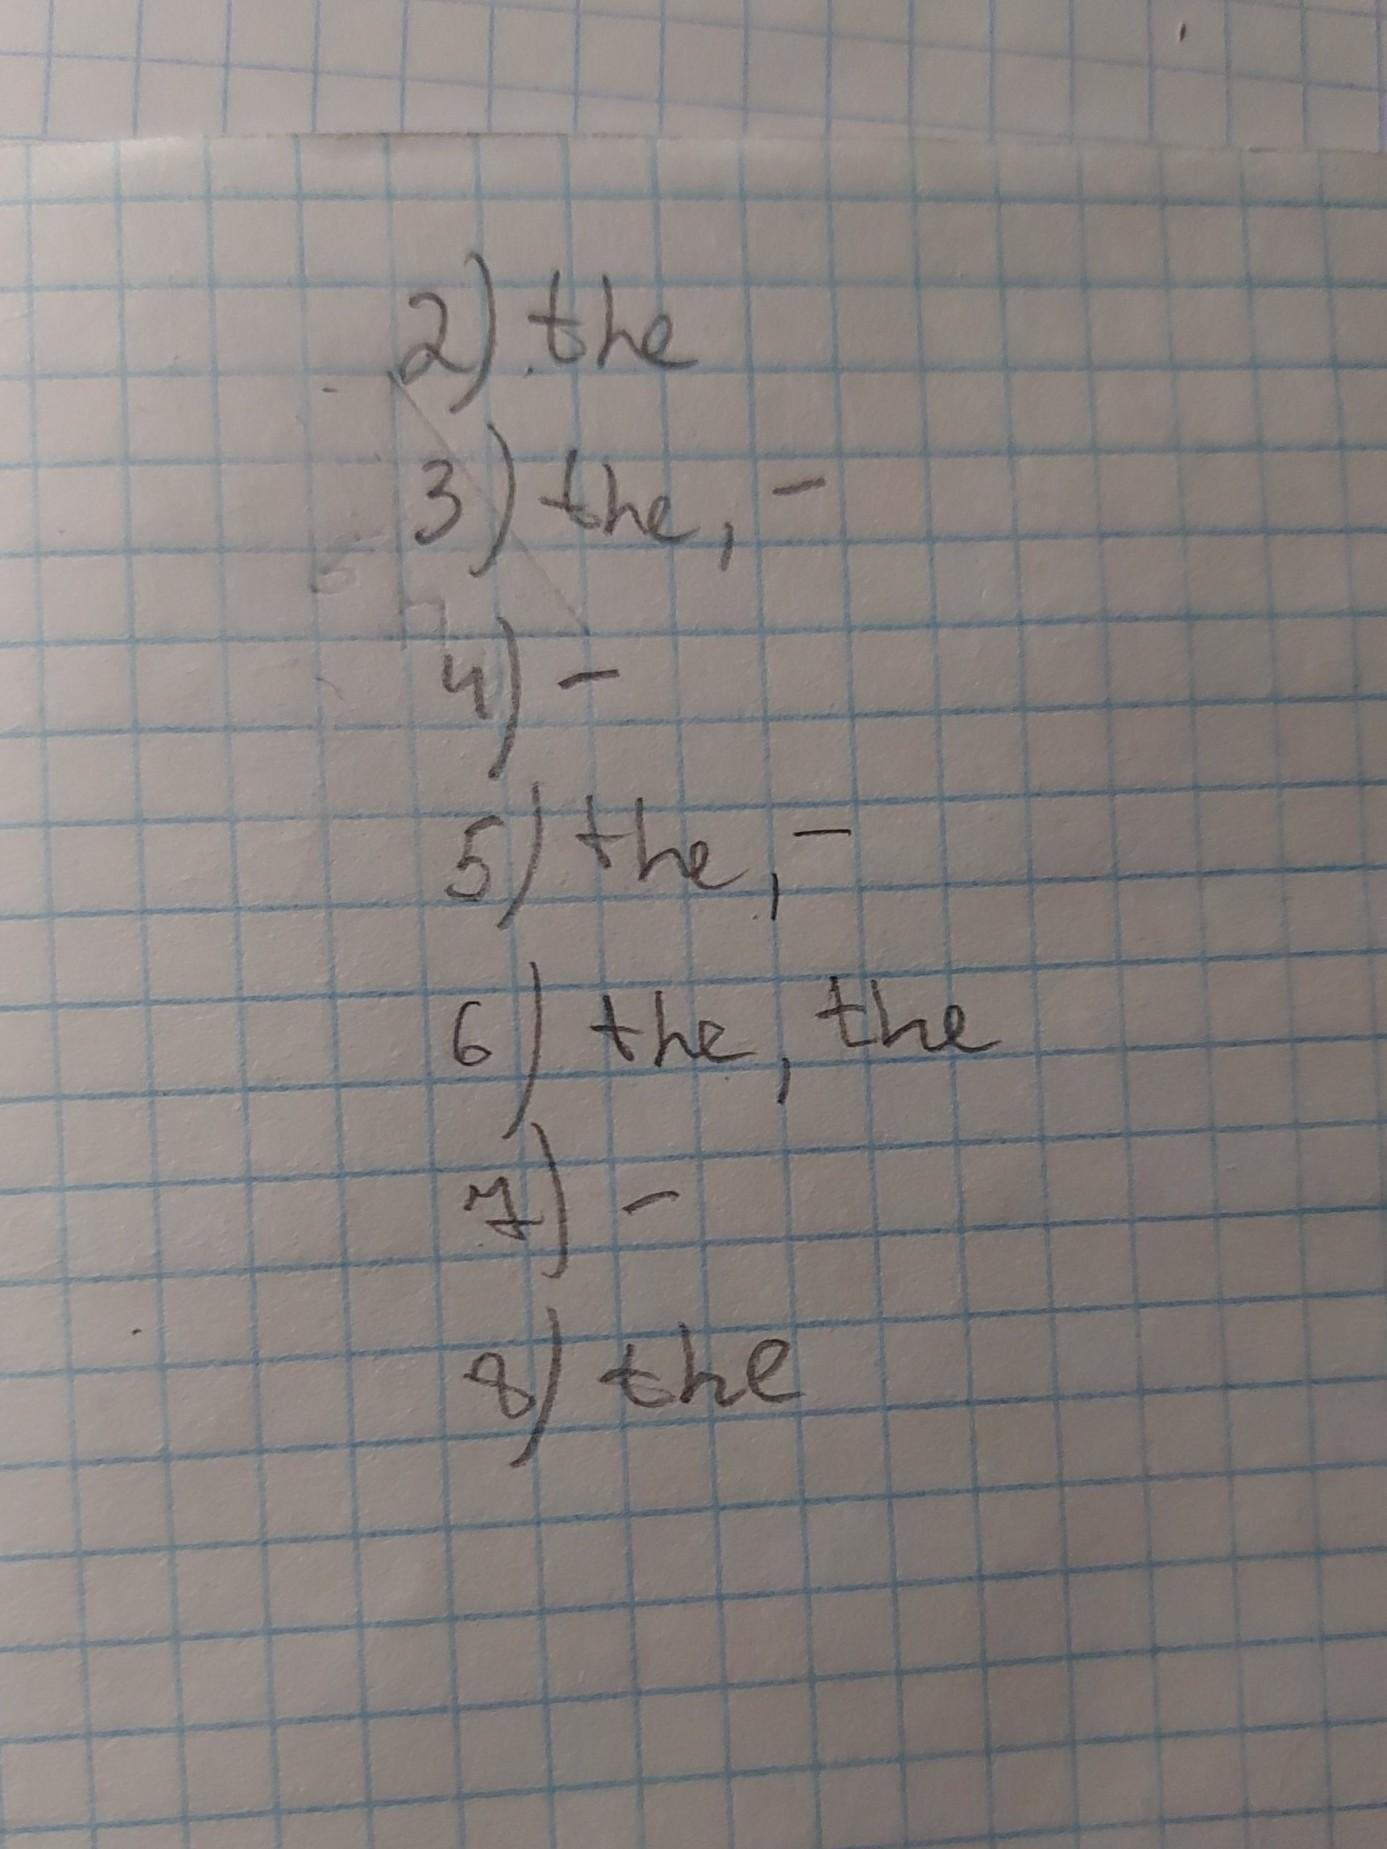 2) the
3) the, -
4) -
5) the, -
6) the, the
7) -
8) the